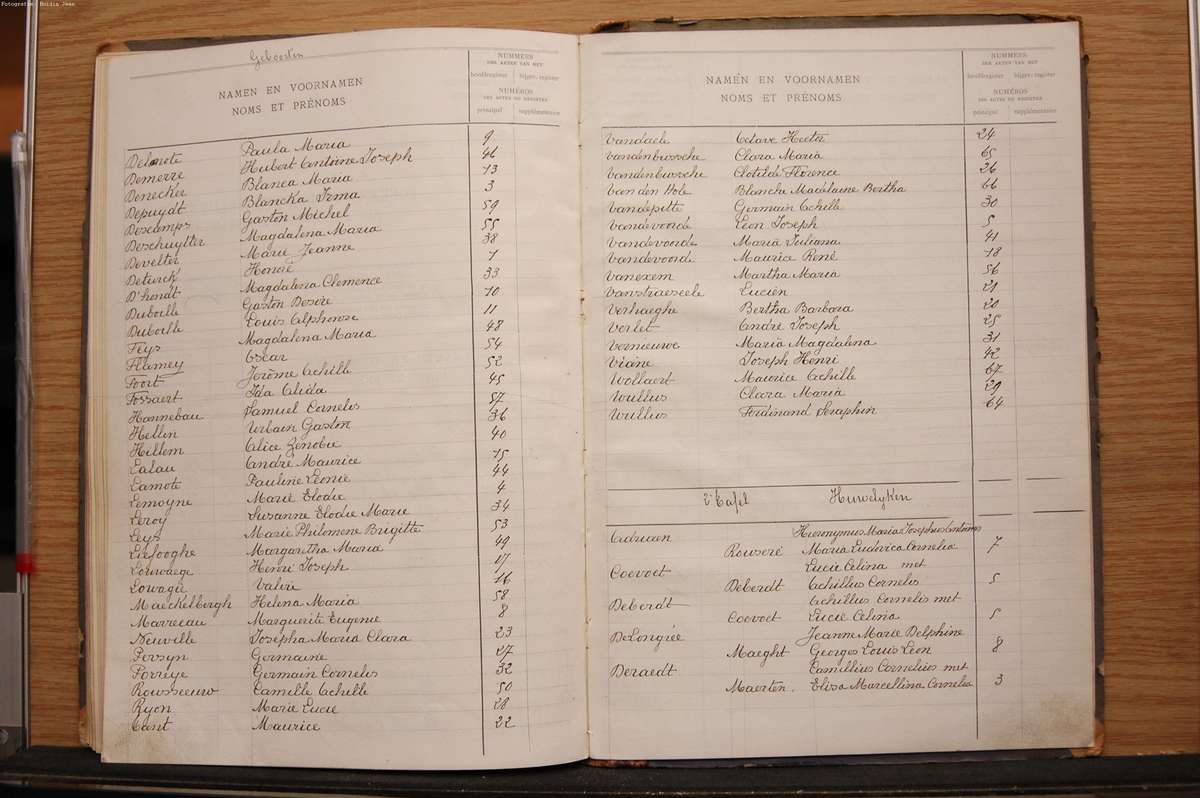 Fotografie: Buidin Jean
Geboorten
NAMEN EN VOORNAMEN
NOMS ET PRÉNOMS
NUMMERS
DER AKTEN VAN HET
hoofdregister bijgev. register
NUMÉROS
DES ACTES DU REGISTRE
principal supplémentaire
Delmote Paula Maria 9
Demerre Hubert Antoine Joseph 46
Denecker Blanca Maria 13
Depuydt Blancka Irma 3
Descamps Gaston Michel 59
Deschuytter Magdalena Maria 55
Develter Marie Jeanne 38
Deturck Honoré 1
D'hondt Magdalena Clemence 33
Duboille Gaston Desiré 10
Duboille Louis Alphonse 11
Feys Magdalena Maria 48
Flamey Oscar 54
Foort Jérôme Achille 52
Fossaert Ida Alida 45
Hannebau Samuel Cornelis 57
Hellin Urbain Gaston 36
Hillem Alice Zenobie 40
Lalau André Maurice 15
Lamote Pauline Léonie 44
Lemoyne Marie Elodie 4
Leroy Susanne Elodie Marie 34
Leys Marie Philomene Brigitte 53
Liefooghe Margaretha Maria 49
Louwaege Henri Joseph 17
Lowagie Valere 16
Maeckelbergh Helena Maria 58
Marreeau Marguerite Eugenie 8
Neuville Josepha Maria Clara 23
Persyn Germaine 27
Porreye Germain Cornelis 32
Rousseeuw Camille Achille 50
Ryon Marie Lucie 28
Tant Maurice 22
NAMEN EN VOORNAMEN
NOMS ET PRÉNOMS
NUMMERS
DER AKTEN VAN HET
hoofdregister bijgev. register
NUMÉROS
DES ACTES DU REGISTRE
principal supplémentaire
Vandaele Octave Hector 24
Vandenbussche Clara Maria 65
Vandenbussche Clotilde Florence 26
Van den Hole Blancke Madelaine Bertha 66
Vandepitte Germain Achille 30
Vandevoorde Léon Joseph 5
Vandevoorde Maria Juliana 41
Vandevoorde Maurice René 18
Vanexem Martha Maria 56
Vanstraeseele Lucien 21
Verhaeghe Bertha Barbara 20
Verlet André Joseph 25
Vernieuwe Maria Magdalena 31
Viaene Joseph Henri 42
Wollaert Maurice Achille 67
Wullus Clara Maria 29
Wullus Ferdinand Seraphin 64
2e Tafel Huwelyken
Adriaen Hieronymus Maria Josephus Antonius
Rouseré Maria Ludovica Cornelia 7
Coevoet Lucie Celina met
Deberdt Achillus Cornelis 5
Deberdt Achillus Cornelis met
Coevoet Lucie Celina 5
DeLongrée Jeanne Marie Delphine
Maeght Georges Louis Leon 8
Deraedt Camillius Cornelius met
Maerten. Elisa Marcellina Cornelia 3